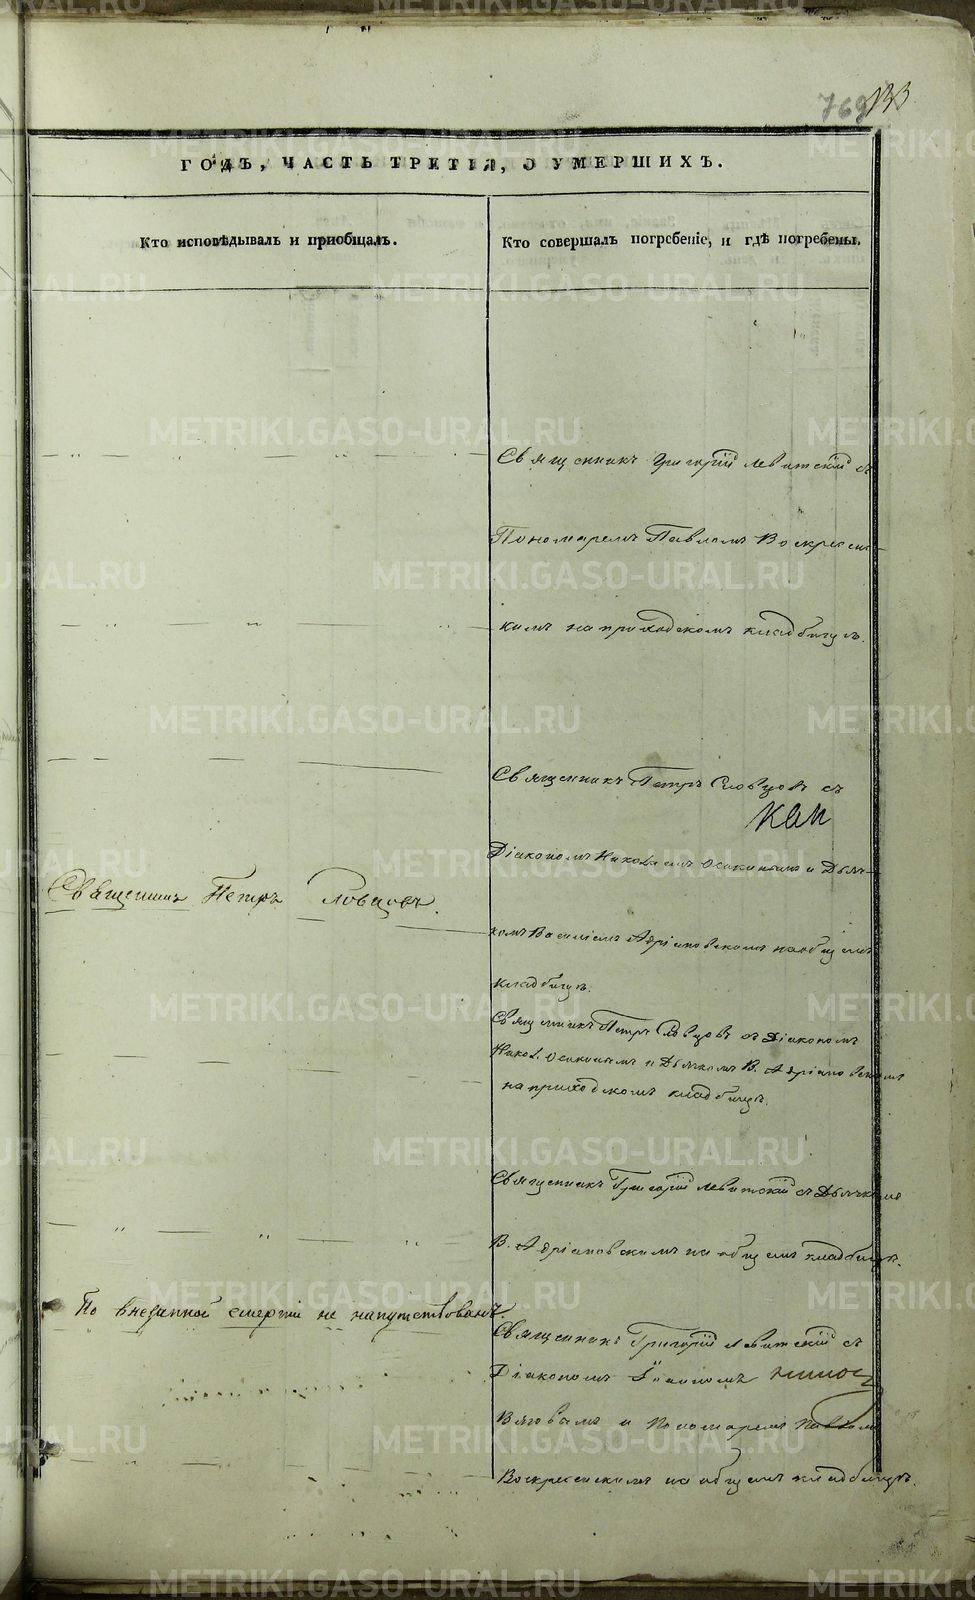 769 133
ГОДЪ, ЧАСТЬ ТРЕТІЯ, О УМЕРШИХЪ.
Кто исповѣдывалъ и пріобщалъ.
Кто совершалъ погребеніе, и гдѣ погребены.
Священникъ Григорій Левитскій съ
Пономаремъ Павломъ Воскресен-
кимъ на приходскомъ кладбищѣ.
Священникъ Петръ Словцовъ съ
Діакономъ Николаемъ Осокинымъ и Дьяч-
Священник Петръ Словцовъ.
комъ Василіемъ Адріановскомъ на общемъ
кладбищѣ.
Священникъ Петръ Словцовъ съ Діакономъ
Никол. Осокинымъ и Дьячкомъ В. Адріановскимъ
на приходскомъ кладбищѣ.
Священникъ Григорій Левитскій съ Дьячкомъ
В. Адріановскимъ на общемъ кладбищѣ.
По внезапной смерти не напутствованъ.
Священникъ Григорій Левитскій съ
Діакономъ Іоанномъ
и Пономаремъ Павлом
Воскресенскимъ на общемъ кладбищѣ.
METRIKI.GASO-URAL.RU